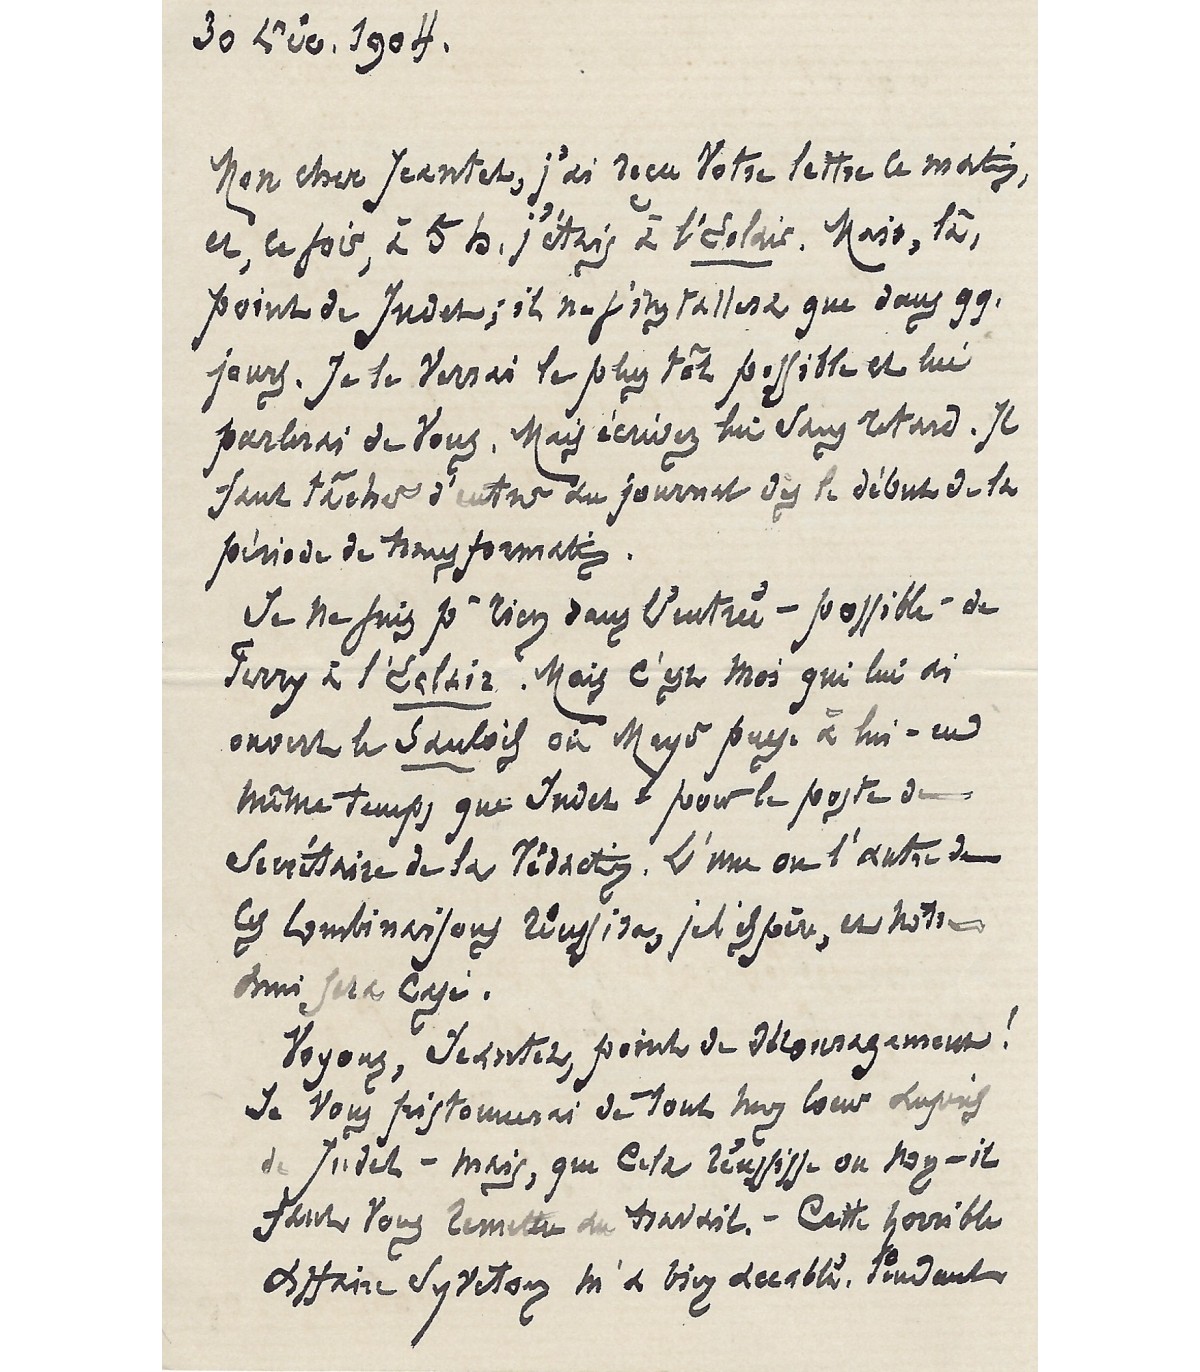 30 Déc. 1904.
Mon cher Jeantet, j'ai reçu Votre lettre ce matin,
et, ce soir, à 5 h. j'étais à l'Eclair. Mais, là,
point de Judet ; il ne s'installera que dans qq.
jours. Je le Verrai le plus tôt possible et lui
parlerai de Vous. Mais écrivez lui Sans retard. Il
faut tâcher d'entrer au journal dès le début de la
période de transformation.
Je ne suis pr rien dans l'entrée – possible – de
Ferry à l'Eclair. Mais c'est moi qui lui ai
ouvert le Gaulois où Meyer pense à lui – en
même temps que Judet – pour le poste de
Secrétaire de la Rédaction. L'une ou l'autre de
Ces Combinaisons réussira, je l'espère, et notre
ami sera Casé.
Voyons, Jeantet, point de découragement !
Je Vous pistonnerai de tout mon Cœur auprès
de Judet – mais, que Cela réussisse ou non – il
faut Vous remettre au travail. – Cette horrible
affaire Syveton m'a bien accablé. Pendant